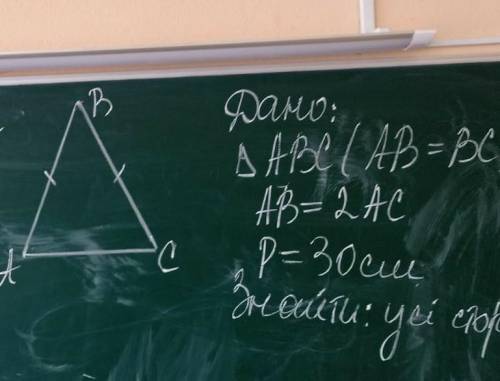 B
A
C
Дано:
△ABC (AB = BC
AB = 2AC
P = 30 см
Знайти: усі